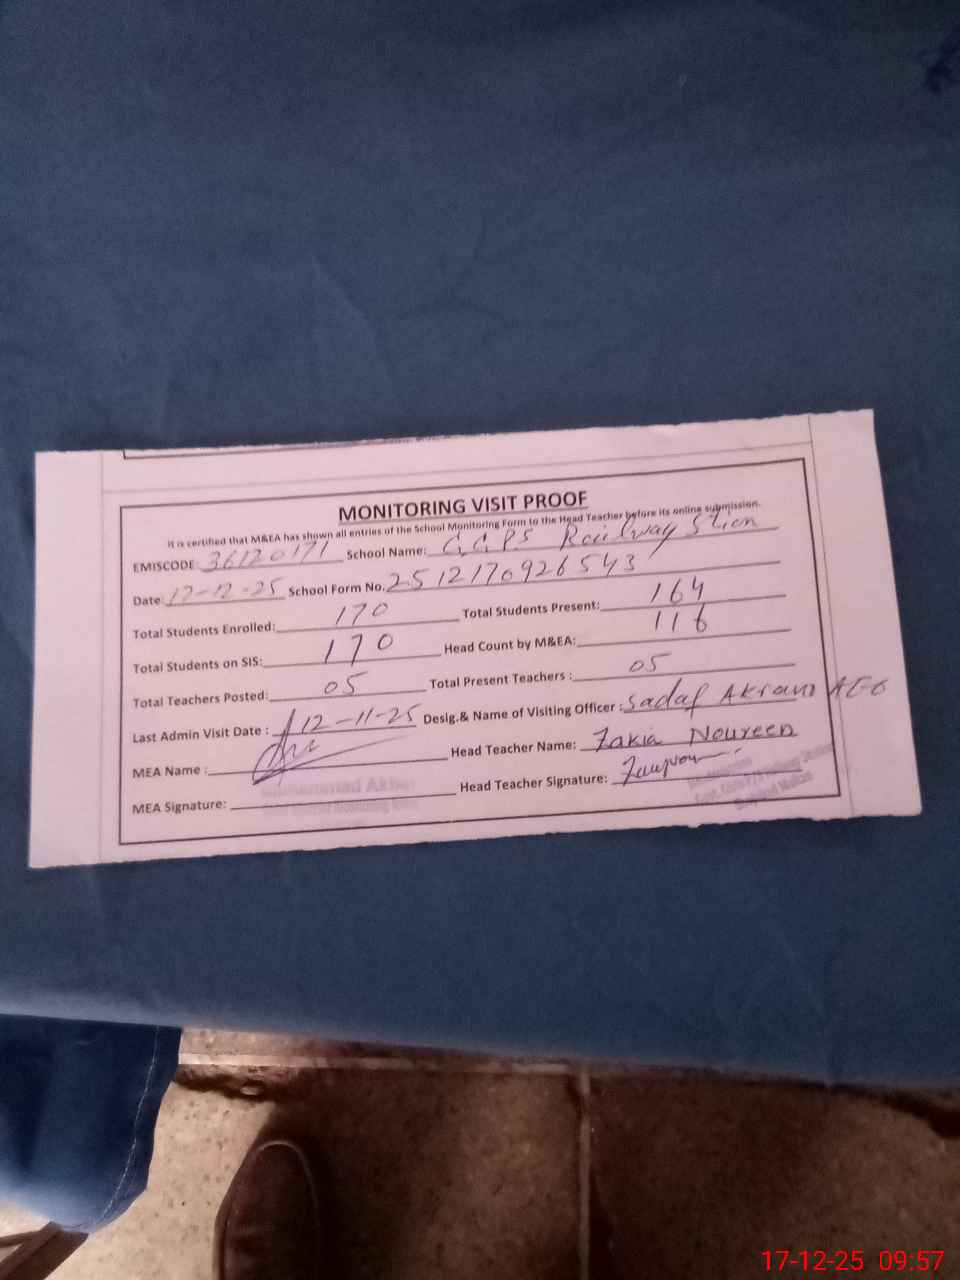 MONITORING VISIT PROOF
It is certified that M&EA has shown all entries of the School Monitoring Form to the Head Teacher before its online submission.
EMISCODE: 36120171 School Name: G.G.P.S Railway Stion
Date: 17-12-25 School Form No. 2512170926543
Total Students Enrolled: 170 Total Students Present: 164
Total Students on SIS: 170 Head Count by M&EA: 116
Total Teachers Posted: 05 Total Present Teachers : 05
Last Admin Visit Date : 12-11-25 Desig.& Name of Visiting Officer : Sadaf Akram AEO
MEA Name : Head Teacher Name: Zakia Noureen
MEA Signature: Head Teacher Signature:
17-12-25 09:57